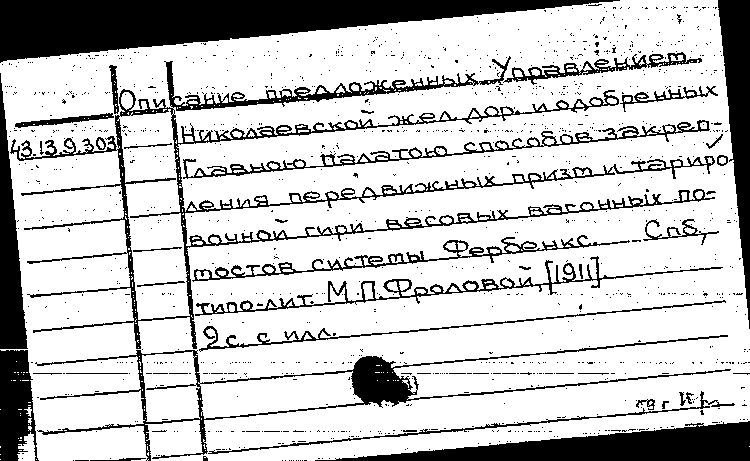 Описание предложенных Управлением
43.13.9.303 Николаевской жел. дор. и одобренных
Главною палатою способов закреп-
ления передвижных призм и тариро-
вочной гири весовых вагонных по-
мостов системы Фербенкс. Спб,
типо-лит. М.П.Фроловой, [1911].
9 с. с илл.